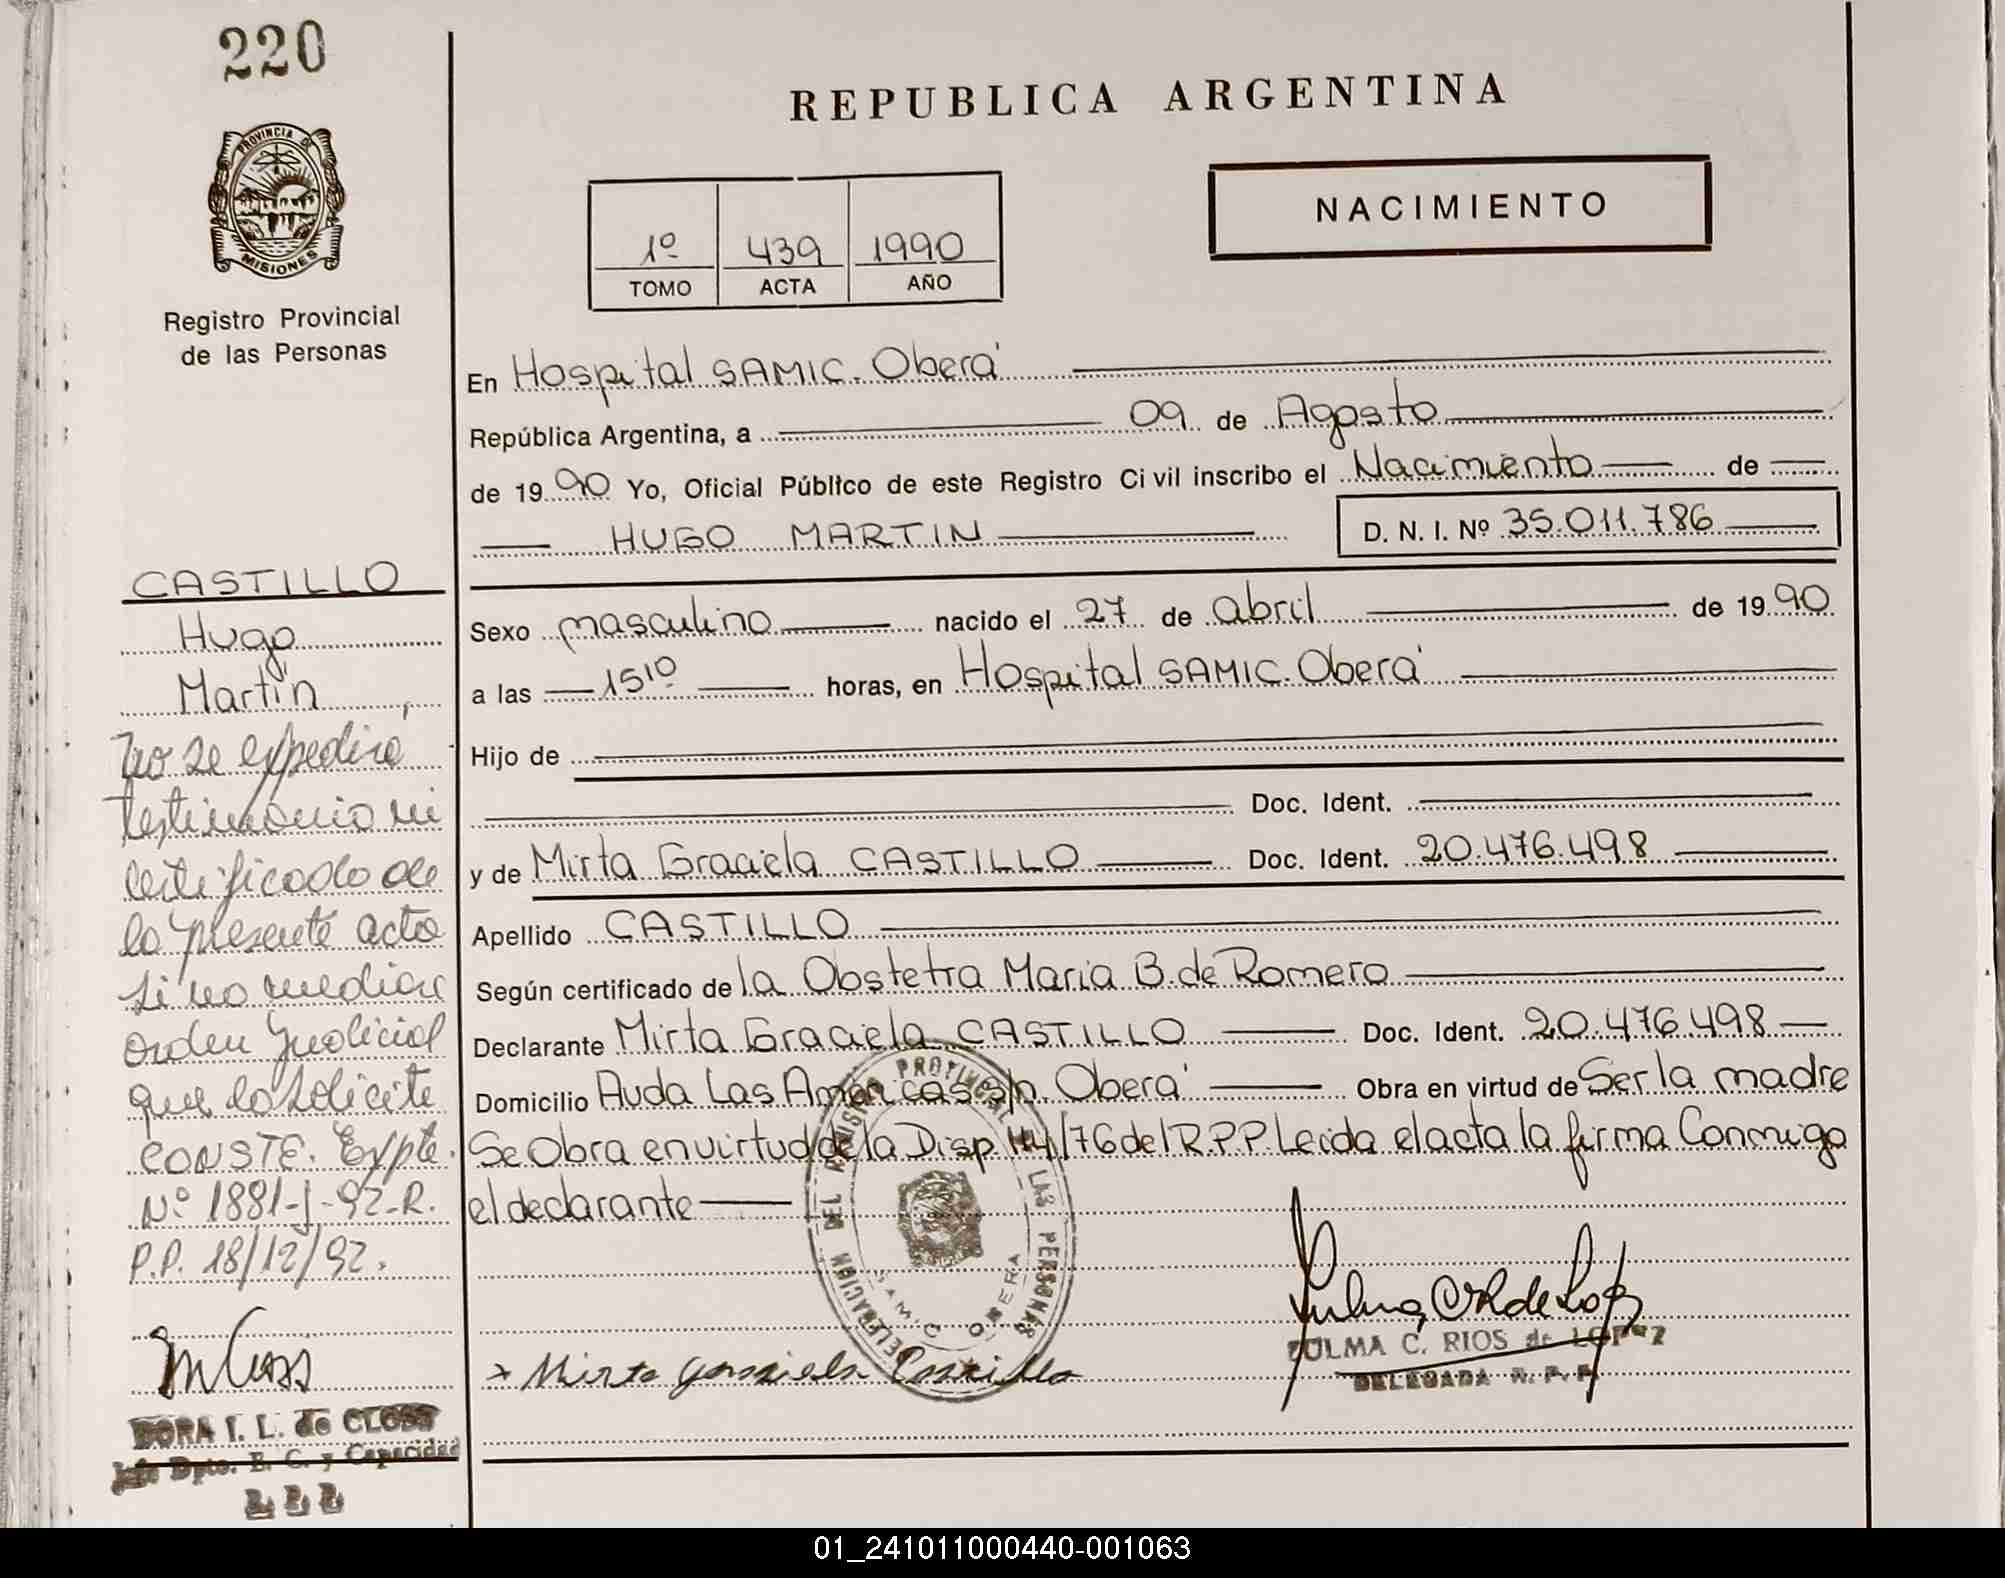 220
PROVINCIA DE
MISIONES
Registro Provincial
de las Personas
REPUBLICA ARGENTINA
NACIMIENTO
1º 439 1990
TOMO ACTA AÑO
En Hospital SAMIC. Oberá
República Argentina, a 09 de Agosto
de 1990 Yo, Oficial Público de este Registro Civil inscribo el Nacimiento de
HUGO MARTIN D. N. I. Nº 35.011.786
Sexo masculino nacido el 27 de abril de 1990
a las 15¹⁰ horas, en Hospital SAMIC. Oberá
Hijo de
Doc. Ident.
y de Mirta Graciela CASTILLO Doc. Ident. 20.476.498
Apellido CASTILLO
Según certificado de la Obstetra Maria B. de Romero
Declarante Mirta Graciela CASTILLO Doc. Ident. 20.476.498
Domicilio Avda Las Americas s/n. Oberá Obra en virtud de Ser la madre
Se Obra en virtud de la Disp. 114/76 del R.P.P. Leida el acta la firma Conmigo
el declarante
CASTILLO
Hugo
Martín
No se expedirá
testimonio ni
certificado de
la presente acta
si no mediar
orden Judicial
que lo solicite
CONSTE. Expte.
Nº 1881-J-92-R.
P.P. 18/12/92.
DORA I. L. de CLOSS
Jefe Dpto. E. C. y Capacidad
R. P. P.
DELEGACION DEL REGISTRO PROVINCIAL DE LAS PERSONAS
SAMIC OBERA
Mirta Graciela Castillo
ZULMA C. RIOS de LOPEZ
DELEGADA R. P. P.
01_241011000440-001063